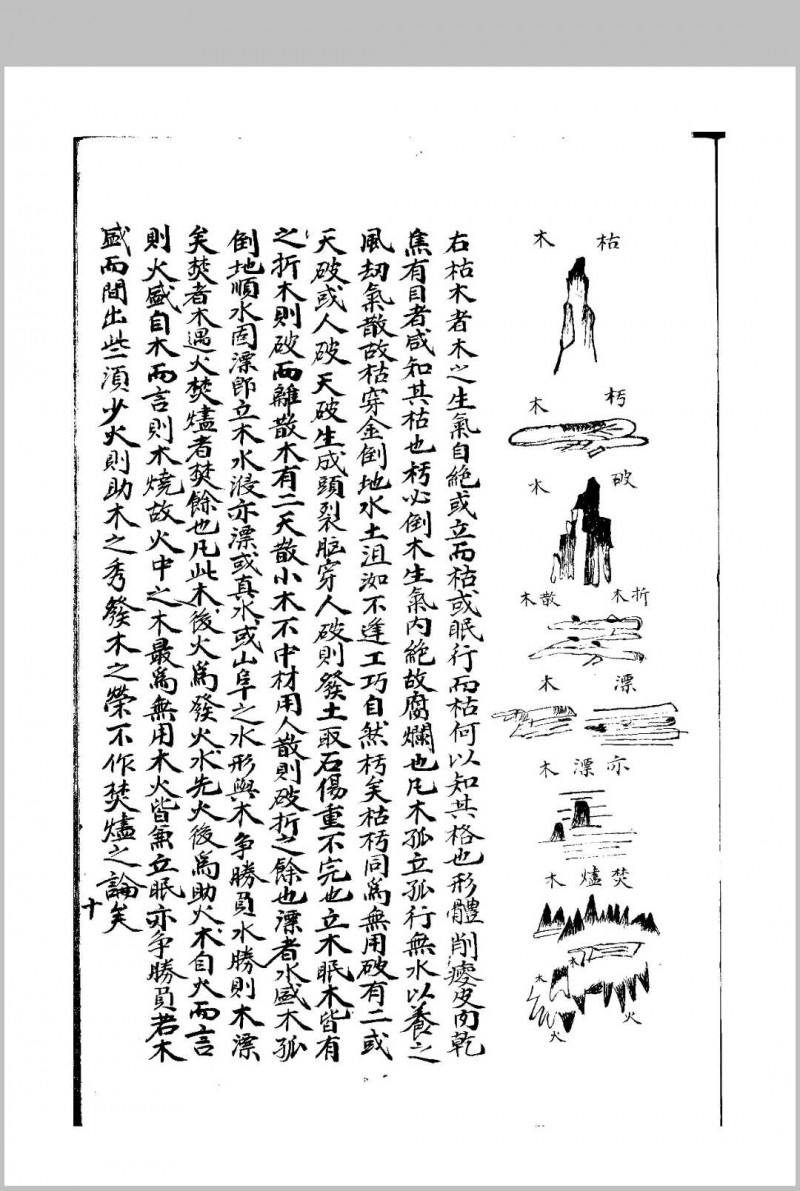 枯木
朽木
破木
折木 散木
漂木
亦漂木
焚燼木
木
木
火
火
右枯木者木之生氣自絶或立而枯或眠行而枯何以知其格也形體削瘦皮肉乾
焦有目者咸知其枯也朽必倒木生氣内絶故腐爛也凡木孤立孤行無水以養之
風刼氣散故枯穿金倒地水土沮洳不逢工巧自然朽矣枯朽同爲無用破有二或
天破或人破天破生成頭裂脏穿人破則發土取石傷重不完也立木眠木皆有
之折木則破而離散木有二天散小木不中材用人散則破折之餘也漂者水盛木孤
倒地順水固漂即立木水浸亦漂或真水或山阜之水形與木争勝負水勝則木漂
矣焚者木遇火焚燼者焚餘也凡此木後火爲發火水先火後爲助火木自火而言
則火盛自木而言則木燒故火中之木最爲無用木火皆無立眠亦争勝負若木
盛而間出些湏少火則助木之秀發木之榮不作焚燼之論矣
十